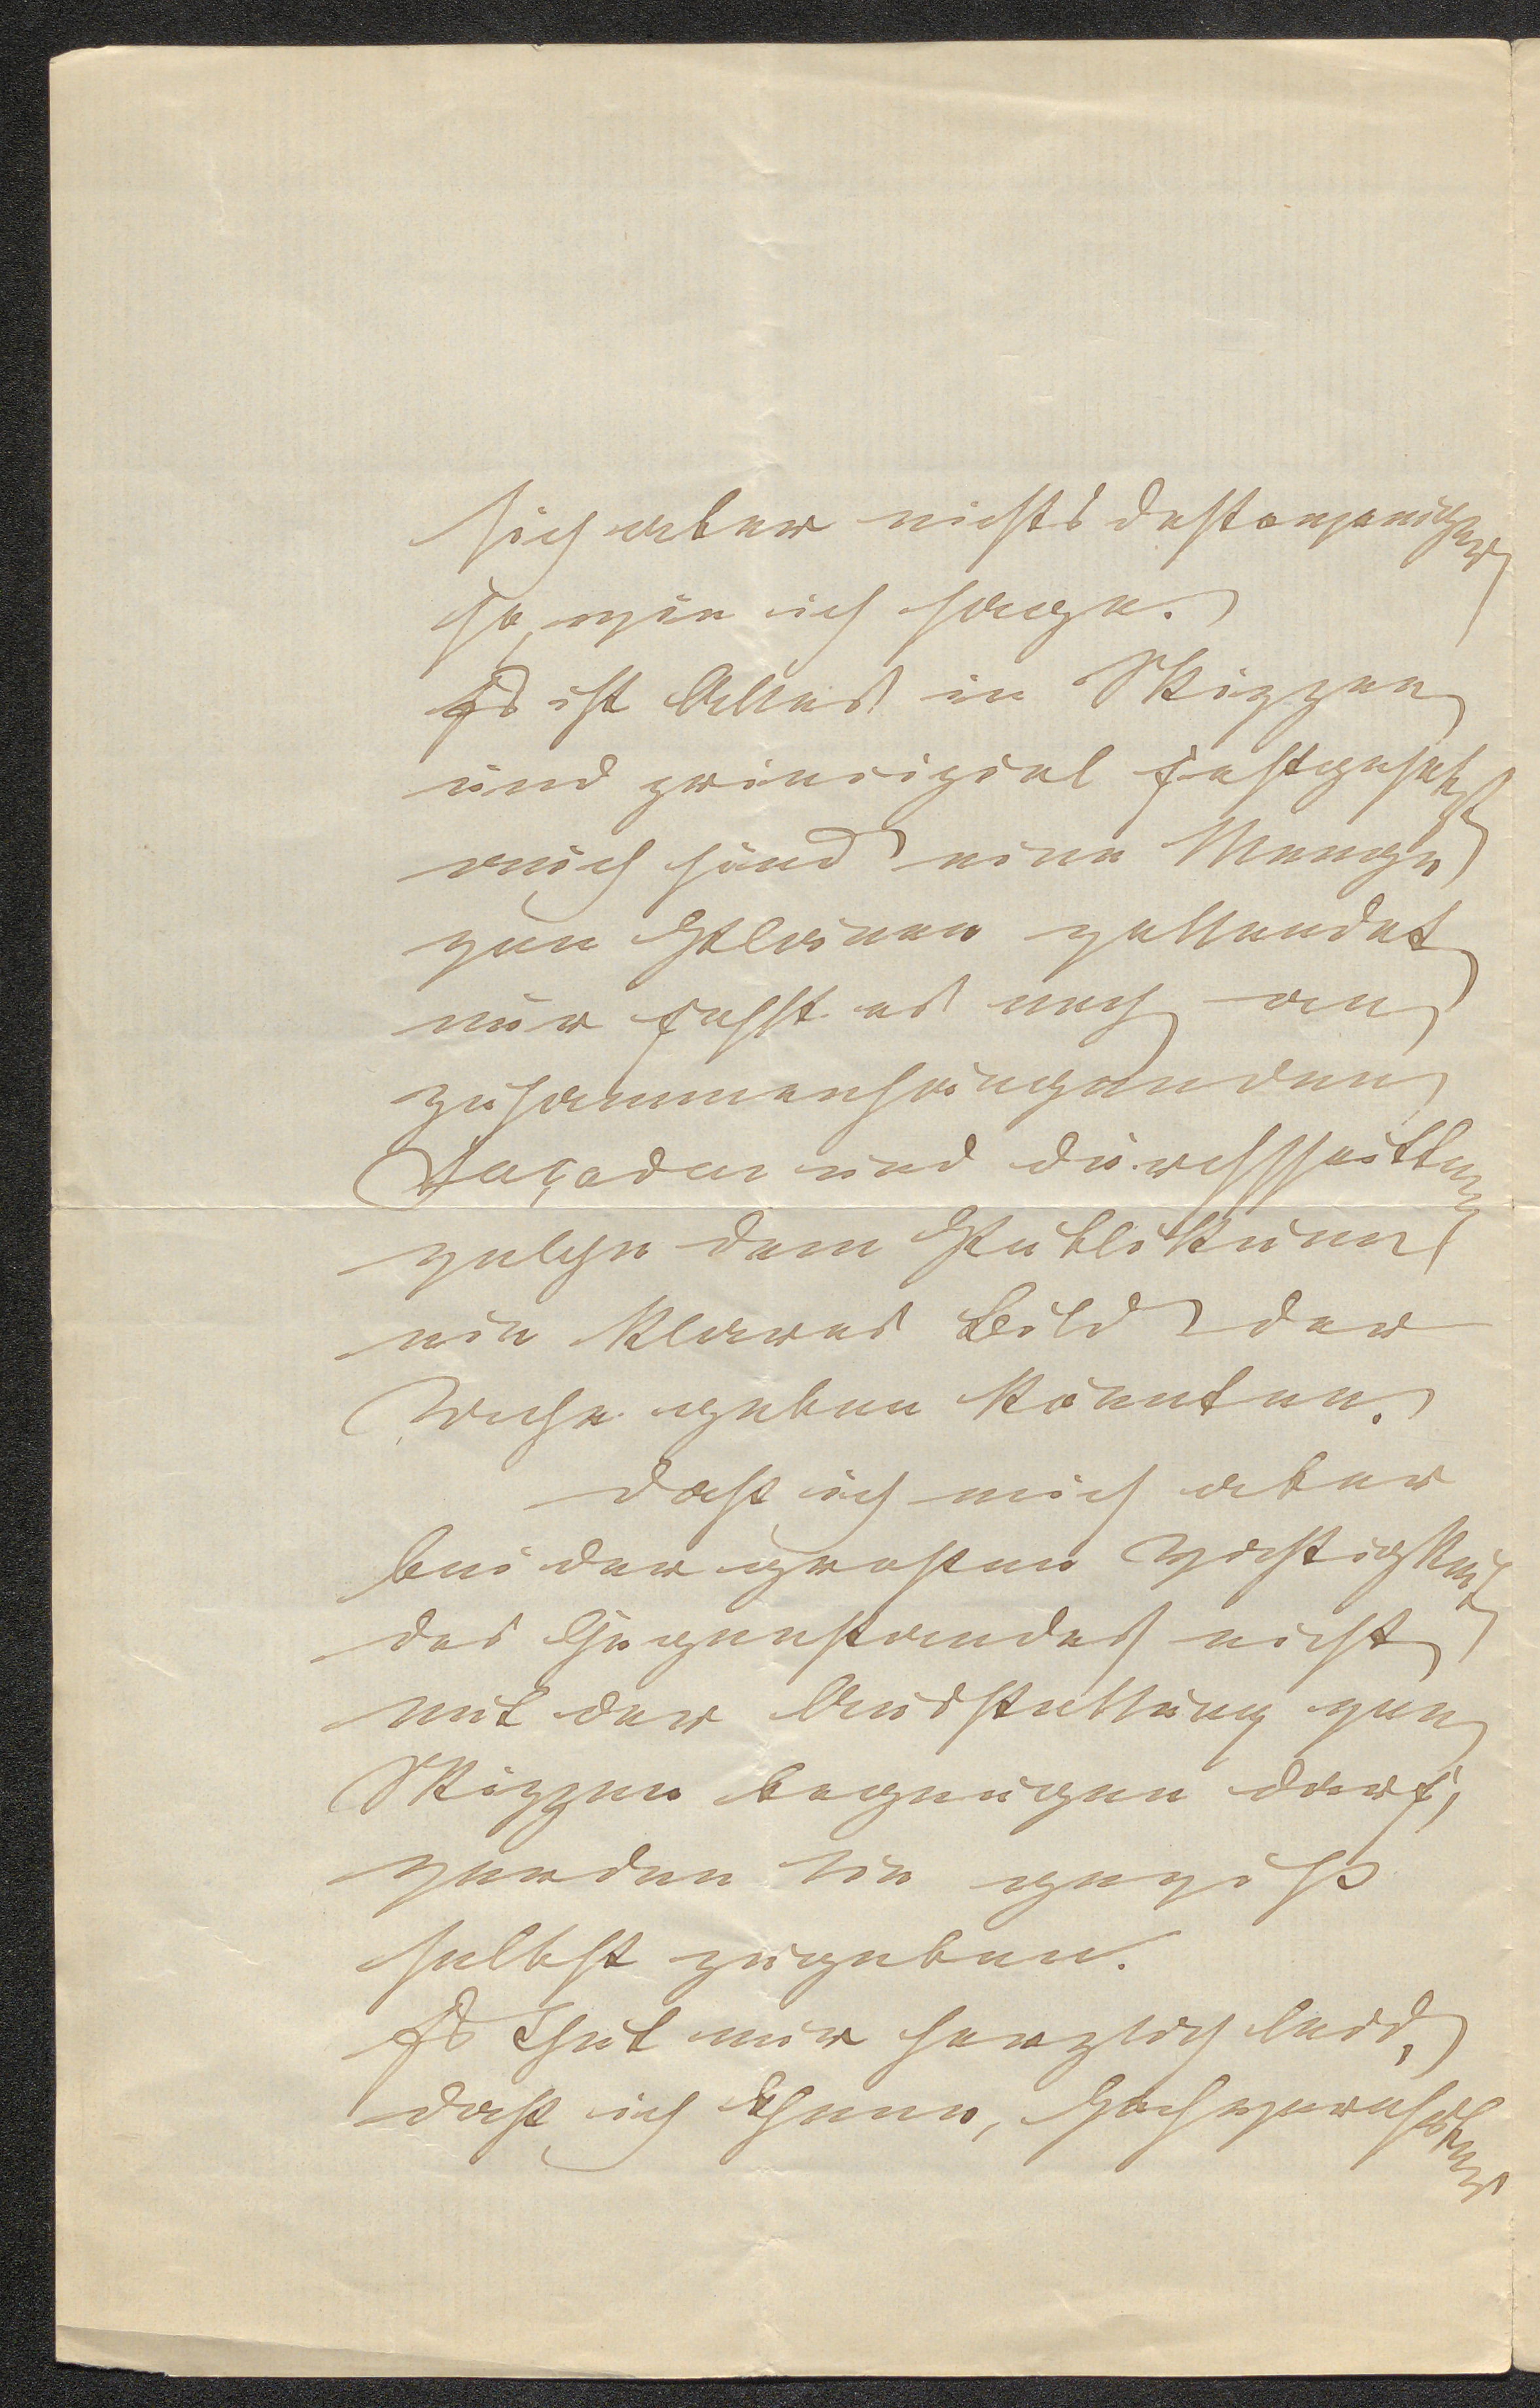 sich aber nichts destoweniger
so, wie ich sage.
Es ist Alles in Skizzen
und principiel festgesetzt
auch sind eine Menge
von Plänen vollendet
nur fehlt es noch an
zusammenhängenden
Façaden und durchschnitten
welche dem Publikum
ein klares Bild der
Sache geben könnten.
dass ich mich aber
bei der grossen Wichtigkeit
des Gegenstandes nicht
mit der Ausstellung von
Skizzen begnügen darf,
werden Sie gewiß
selbst zugeben.
Es thut mir herzlich leid,
dass ich Ihnen, hochverehrter